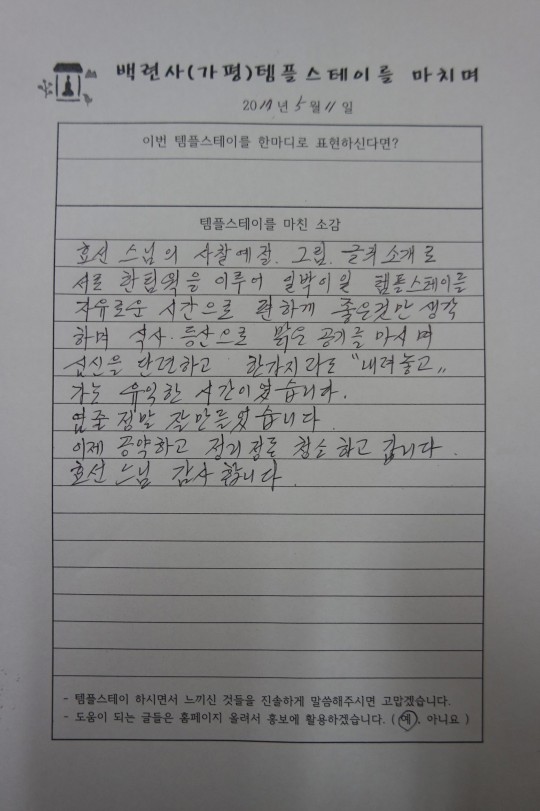 백련사(가평)템플스테이를 마치며
2017년 5월 11일
이번 템플스테이를 한마디로 표현하신다면?
템플스테이를 마친 소감
효선 스님의 사찰예절. 그림. 글귀소개로
서로 한팀웍을 이루어 일박이일 템플스테이를
자유로운 시간으로 편하게 좋은것만 생각
하며 식사·등산으로 맑은 공기를 마시며
심신을 단련하고 한가지라도 "내려놓고"
가는 유익한 시간이었습니다.
염줄 정말 잘만들었습니다.
이제 공약하고 정리정돈 청소하고 갑니다.
효선 스님 감사합니다.
- 템플스테이 하시면서 느끼신 것들을 진솔하게 말씀해주시면 고맙겠습니다.
- 도움이 되는 글들은 홈페이지 올려서 홍보에 활용하겠습니다. ( 예, 아니요 )